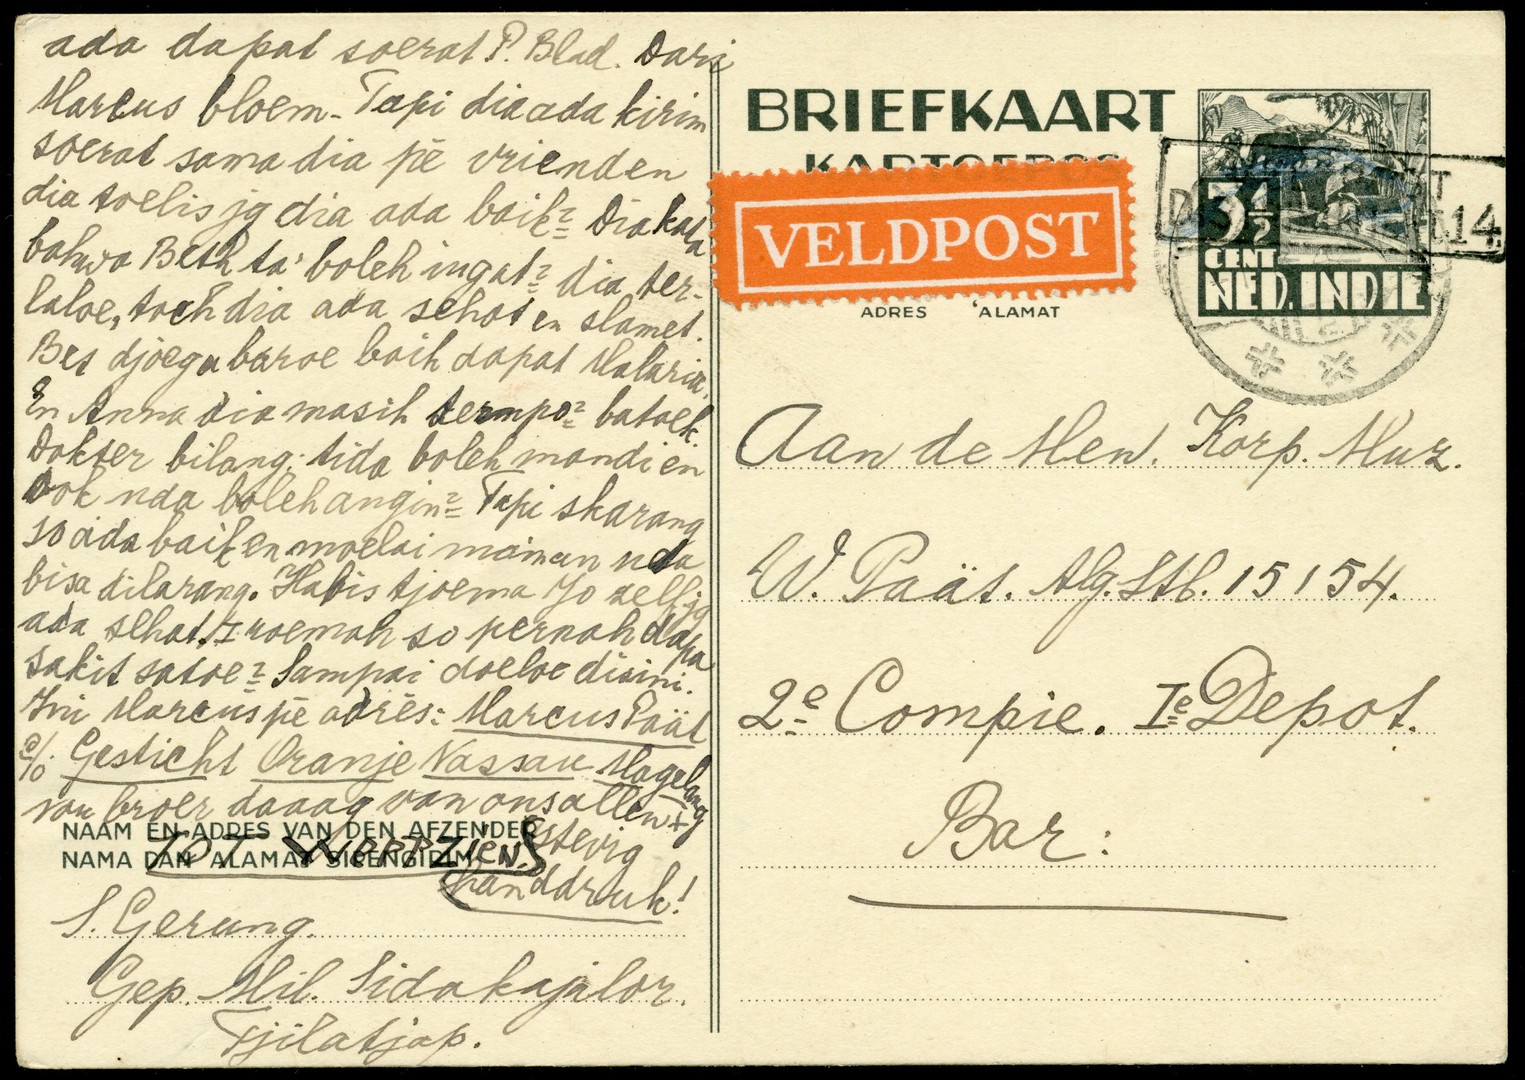 ada dapat soerat P. Blad. Dari
Marcus bloem - Tapi dia ada kirim
soerat sama dia pē vrienden
dia toelis jg dia ada baik² Dia kata
bahwa Beth ta' boleh ingat² dia ter-
laloe, toch dia ada sehat en slamet.
Bet djoega baroe baik dapat Malaria.
En Anna dia masih tempo² batoek.
Dokter bilang: tida boleh mandi en
ook nda boleh angin² Tapi skarang
so ada baik en moelai main nda
bisa dilarang. Habis tjoema Jo
ada sehat. I roemah so pernah dapa
sakit satoe² Sampai doeloe disini.
Ini Marcus pē adrēs: Marcus Paät
a/o Gesticht Oranje Nassau Magelang
van broer daaag van ons allen +
stevig
handdruk!
TOT WEERZIEN
NAAM EN ADRES VAN DEN AFZENDER
NAMA DAN ALAMAT SIPENGIRIM
S. Gerung.
Gep. Mil. Sidakajalor.
Tjilatjap.
BRIEFKAART
KARTOEPOS
VELDPOST
ADRES ALAMAT
3½
CENT
NED. INDIE
14
Aan de Men. Korp. Muz.
W. Paät. Alg. Stb. 15154.
2e Compie. Ie Depot.
Bar: